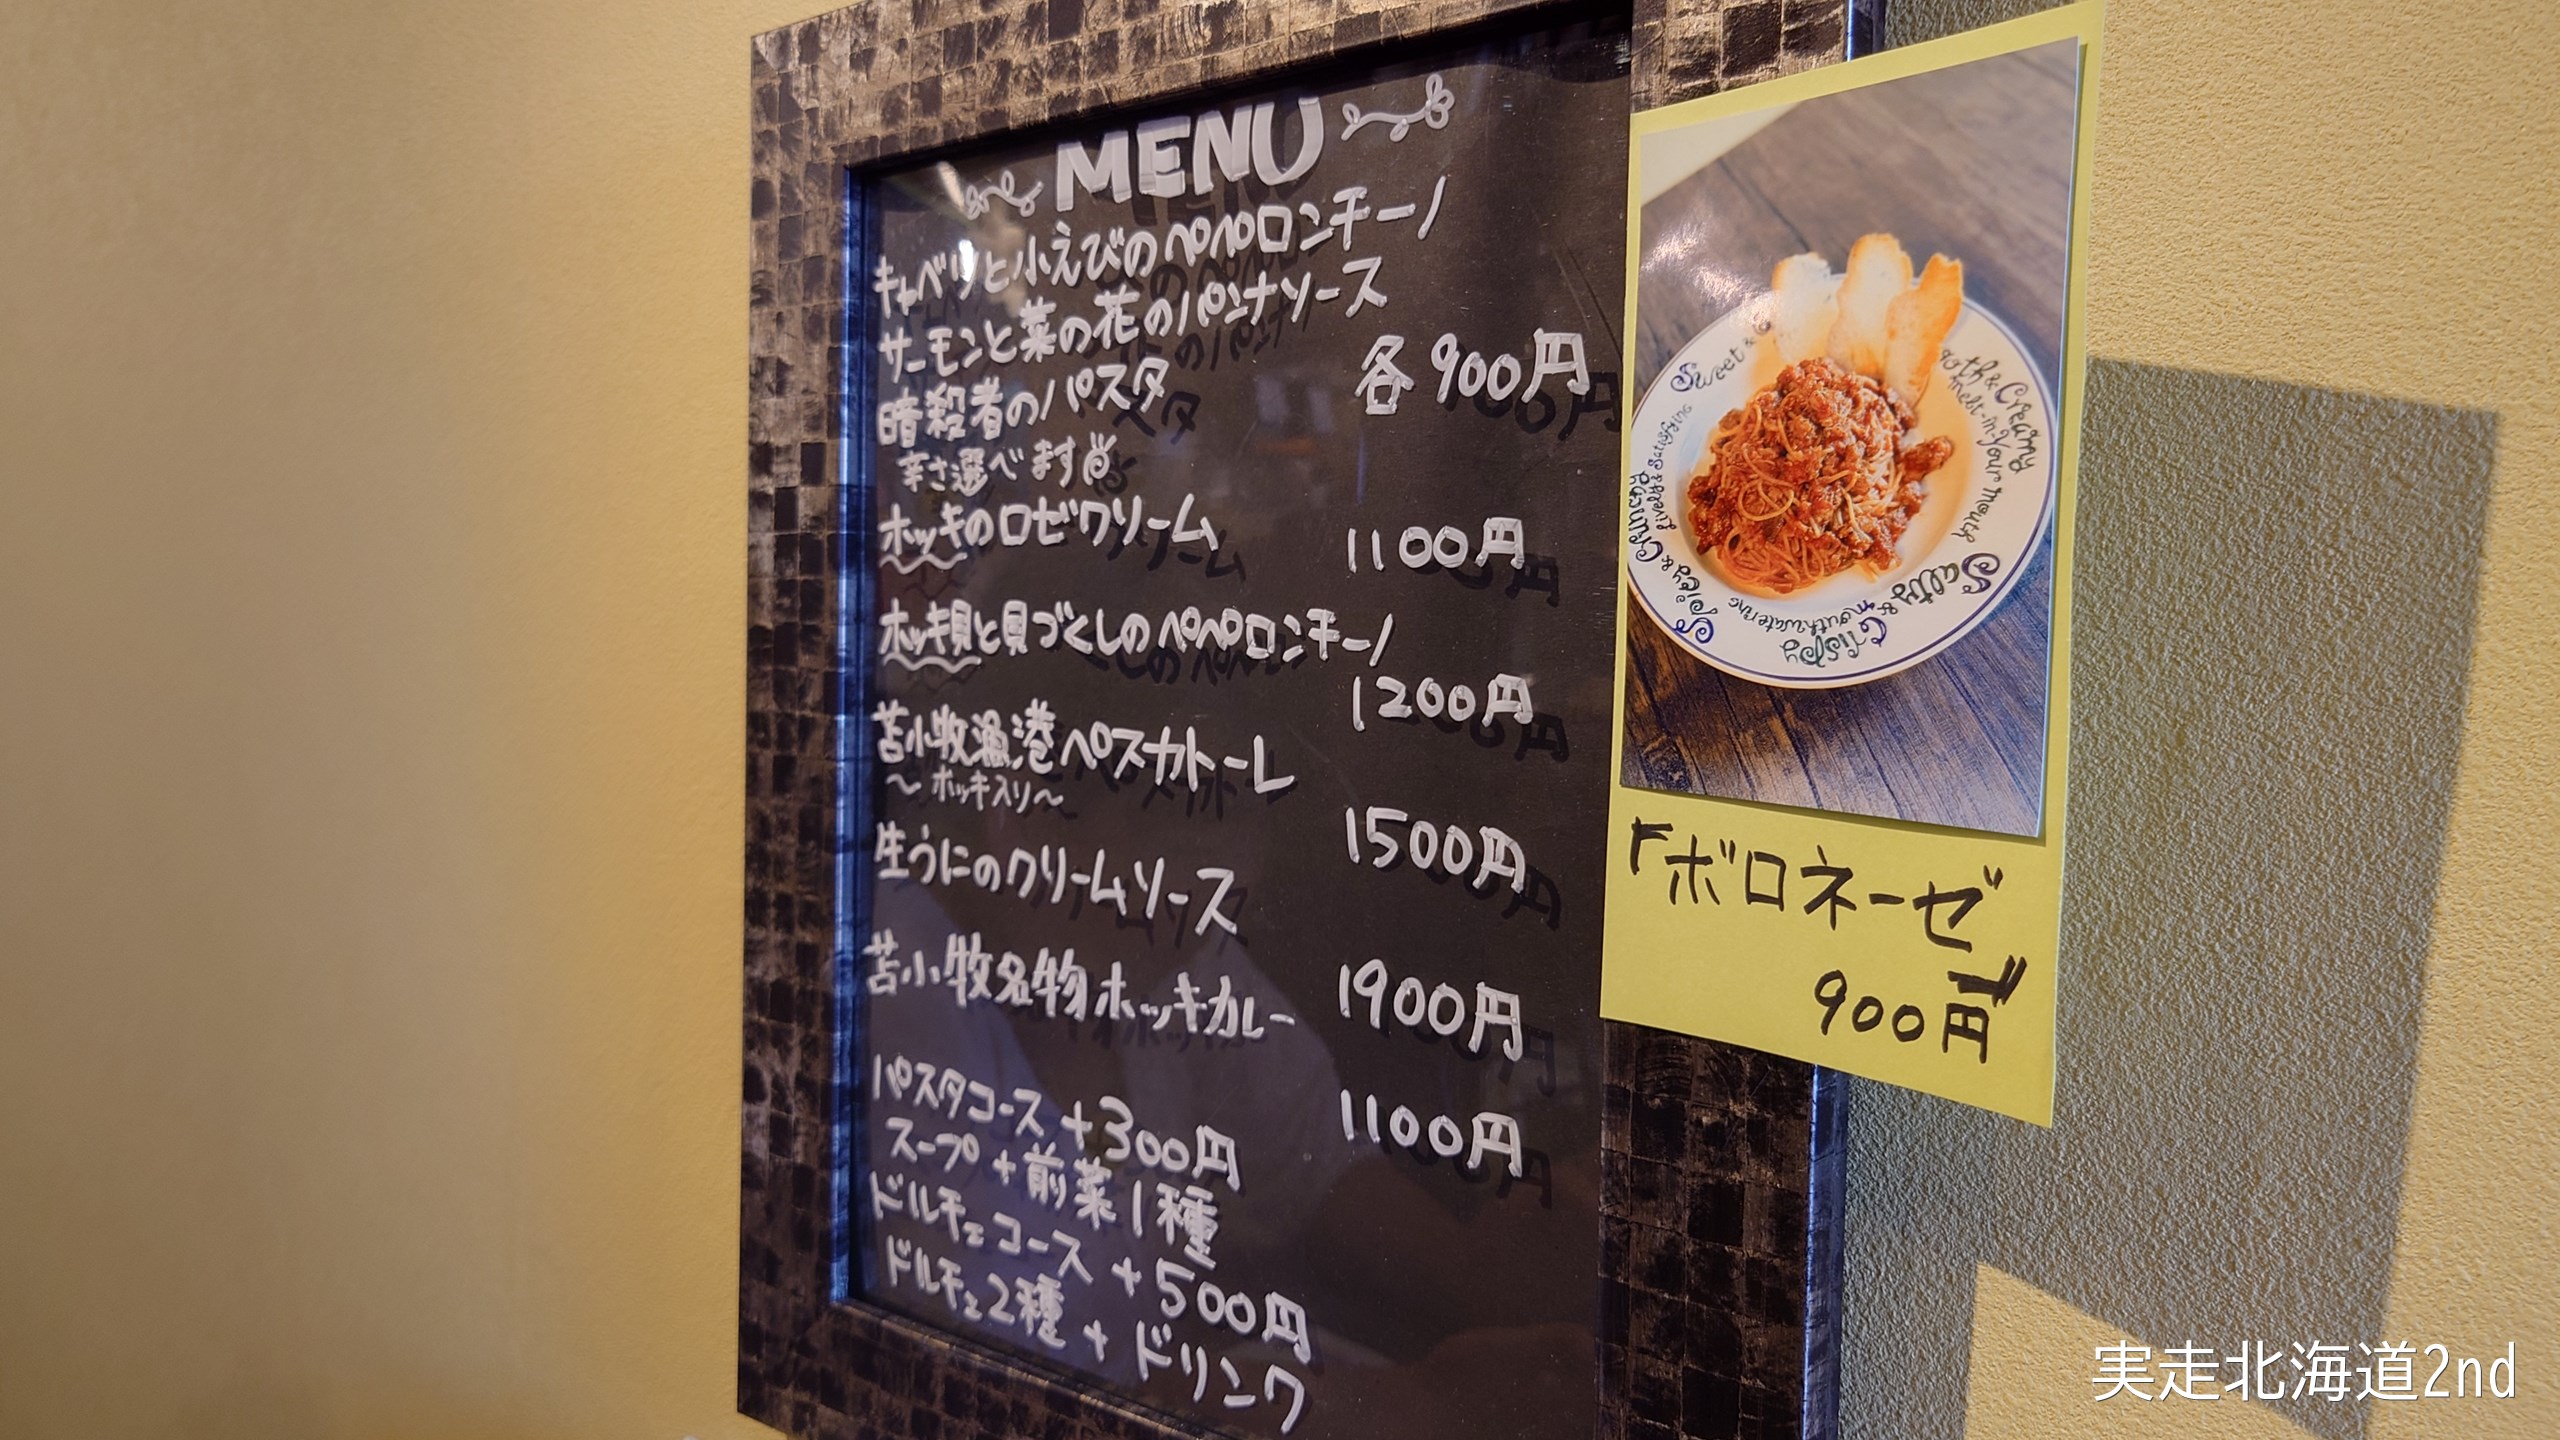 MENU
キャベツと小えびのペペロンチーノ
サーモンと菜の花のパンナソース
暗殺者のパスタ
各900円
辛さ選べます
ホッキのロゼクリーム
1100円
ホッキ貝と貝づくしのペペロンチーノ
1200円
苫小牧漁港ペスカトーレ
～ホッキ入り～
1500円
生うにのクリームソース
1900円
苫小牧名物ホッキカレー
1100円
パスタコース+300円
スープ+前菜1種
ドルチェコース+500円
ドルチェ2種+ドリンク
Sweet &
th & Creamy
melt-in-Your mouth
Salty & Crispy
mouthwatering
Spicy & Crunchy
Lively & Satisfying
『ボロネーゼ』
900円
実走北海道2nd